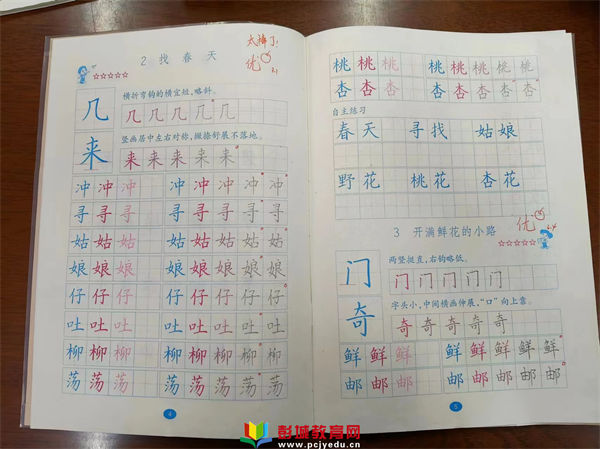 2 找 春 天
太棒了!
优
几
横折弯钩的横宜短,略斜。
几 几 几 几 几
来
竖画居中左右对称,撇捺舒展不落地。
来 来 来 来 来
冲 冲 冲 冲 冲 冲 冲
寻 寻 寻 寻 寻 寻 寻
姑 姑 姑 姑 姑 姑 姑
娘 娘 娘 娘 娘 娘 娘
仔 仔 仔 仔 仔 仔 仔
吐 吐 吐 吐 吐 吐 吐
柳 柳 柳 柳 柳 柳 柳
荡 荡 荡 荡 荡 荡 荡
4
桃 桃 桃 桃 桃 桃 桃 桃
杏 杏 杏 杏 杏 杏 杏 杏
自主练习
春 天 寻 找 姑 娘
野 花 桃 花 杏 花
优
3 开满鲜花的小路
门
两竖挺直,右钩略低。
门 门 门 门 门
奇
字头小,中间横画伸展,“口”向上靠。
奇 奇 奇 奇 奇
鲜 鲜 鲜 鲜 鲜 鲜 鲜 鲜
邮 邮 邮 邮 邮 邮 邮 邮
5
彭城教育网
www.pcjyedu.cn